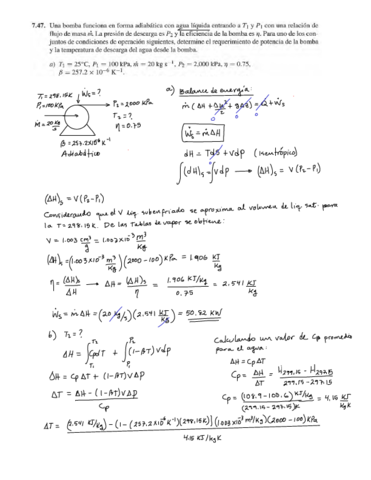 7.47. Una bomba funciona en forma adiabática con agua líquida entrando a T₁ y P₁ con una relación de
flujo de masa ṁ. La presión de descarga es P₂ y la eficiencia de la bomba es η. Para uno de los con-
juntos de condiciones de operación siguientes, determine el requerimiento de potencia de la bomba
y la temperatura de descarga del agua desde la bomba.
a) T₁ = 25°C, P₁ = 100 kPa, ṁ = 20 kg s⁻¹, P₂ = 2,000 kPa, η = 0.75,
β = 257.2 × 10⁻⁶ K⁻¹.
T₁= 298.15K
Ẇs = ?
P₁=100kPa
P₂ = 2000 kPa
T₂ = ?
η = 0.75
ṁ = 20 kg/s
β = 257.2×10⁻⁶ K⁻¹
Adiabático
a) Balance de energía
ṁ (ΔH + Δu²/2 + gΔz) = Q̇ + Ẇs
Ẇs = ṁ ΔH
dH = Tds + Vdp (Isentrópico)
∫(dH)s = ∫Vdp → (ΔH)s = V(P₂-P₁)
(ΔH)s = V(P₂-P₁)
Considerando que el V liq. subenfriado se aproxima al volumen de liq. sat. para
la T = 298.15K. De las Tablas de vapor se obtiene:
V = 1.003 cm³/g = 1.003×10⁻³ m³/kg
(ΔH)s = (1.003×10⁻³ m³/kg)(2000-100) kPa = 1.906 KJ/kg
η = (ΔH)s/ΔH → ΔH = (ΔH)s/η = 1.906 KJ/kg / 0.75 = 2.541 KJ/kg
Ẇs = ṁ ΔH = (20 kg/s)(2.541 KJ/kg) = 50.82 KW
b) T₂ = ?
ΔH = ∫CpdT + ∫(1-βT)Vdp
ΔH = CpΔT + (1-βT)VΔp
ΔT = ΔH - (1-βT)VΔp / Cp
Calculando un valor de Cp promedio
para el agua:
ΔH = CpΔT
Cp = ΔH/ΔT = H₂₉₉.₁₅ - H₂₉₇.₁₅ / 299.15 - 297.15
Cp = (108.9-100.6) KJ/kg / (299.15-297.15)K = 4.15 KJ/kg K
ΔT = (2.541 KJ/kg) - (1-(257.2×10⁻⁶ K⁻¹)(298.15K))(1.003×10⁻³ m³/kg)(2000-100) kPa / 4.15 KJ/kg K